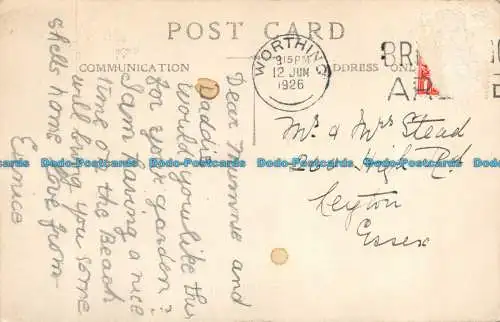 POST CARD
COMMUNICATION
ADDRESS ONL
WORTHING
915PM
12 JUN
1926
BR
Dear Mummie and
Daddie
Would you like this
for your garden?
I am having a nice
time on the Beach
will bring you some
shells home love from
Eunice
Mr & Mrs Stead
High Rd
Leyton
Essex
Dodo-Postcards Dodo-Postcards Dodo-Postcards Dodo-Postcards Dodo-Postcards